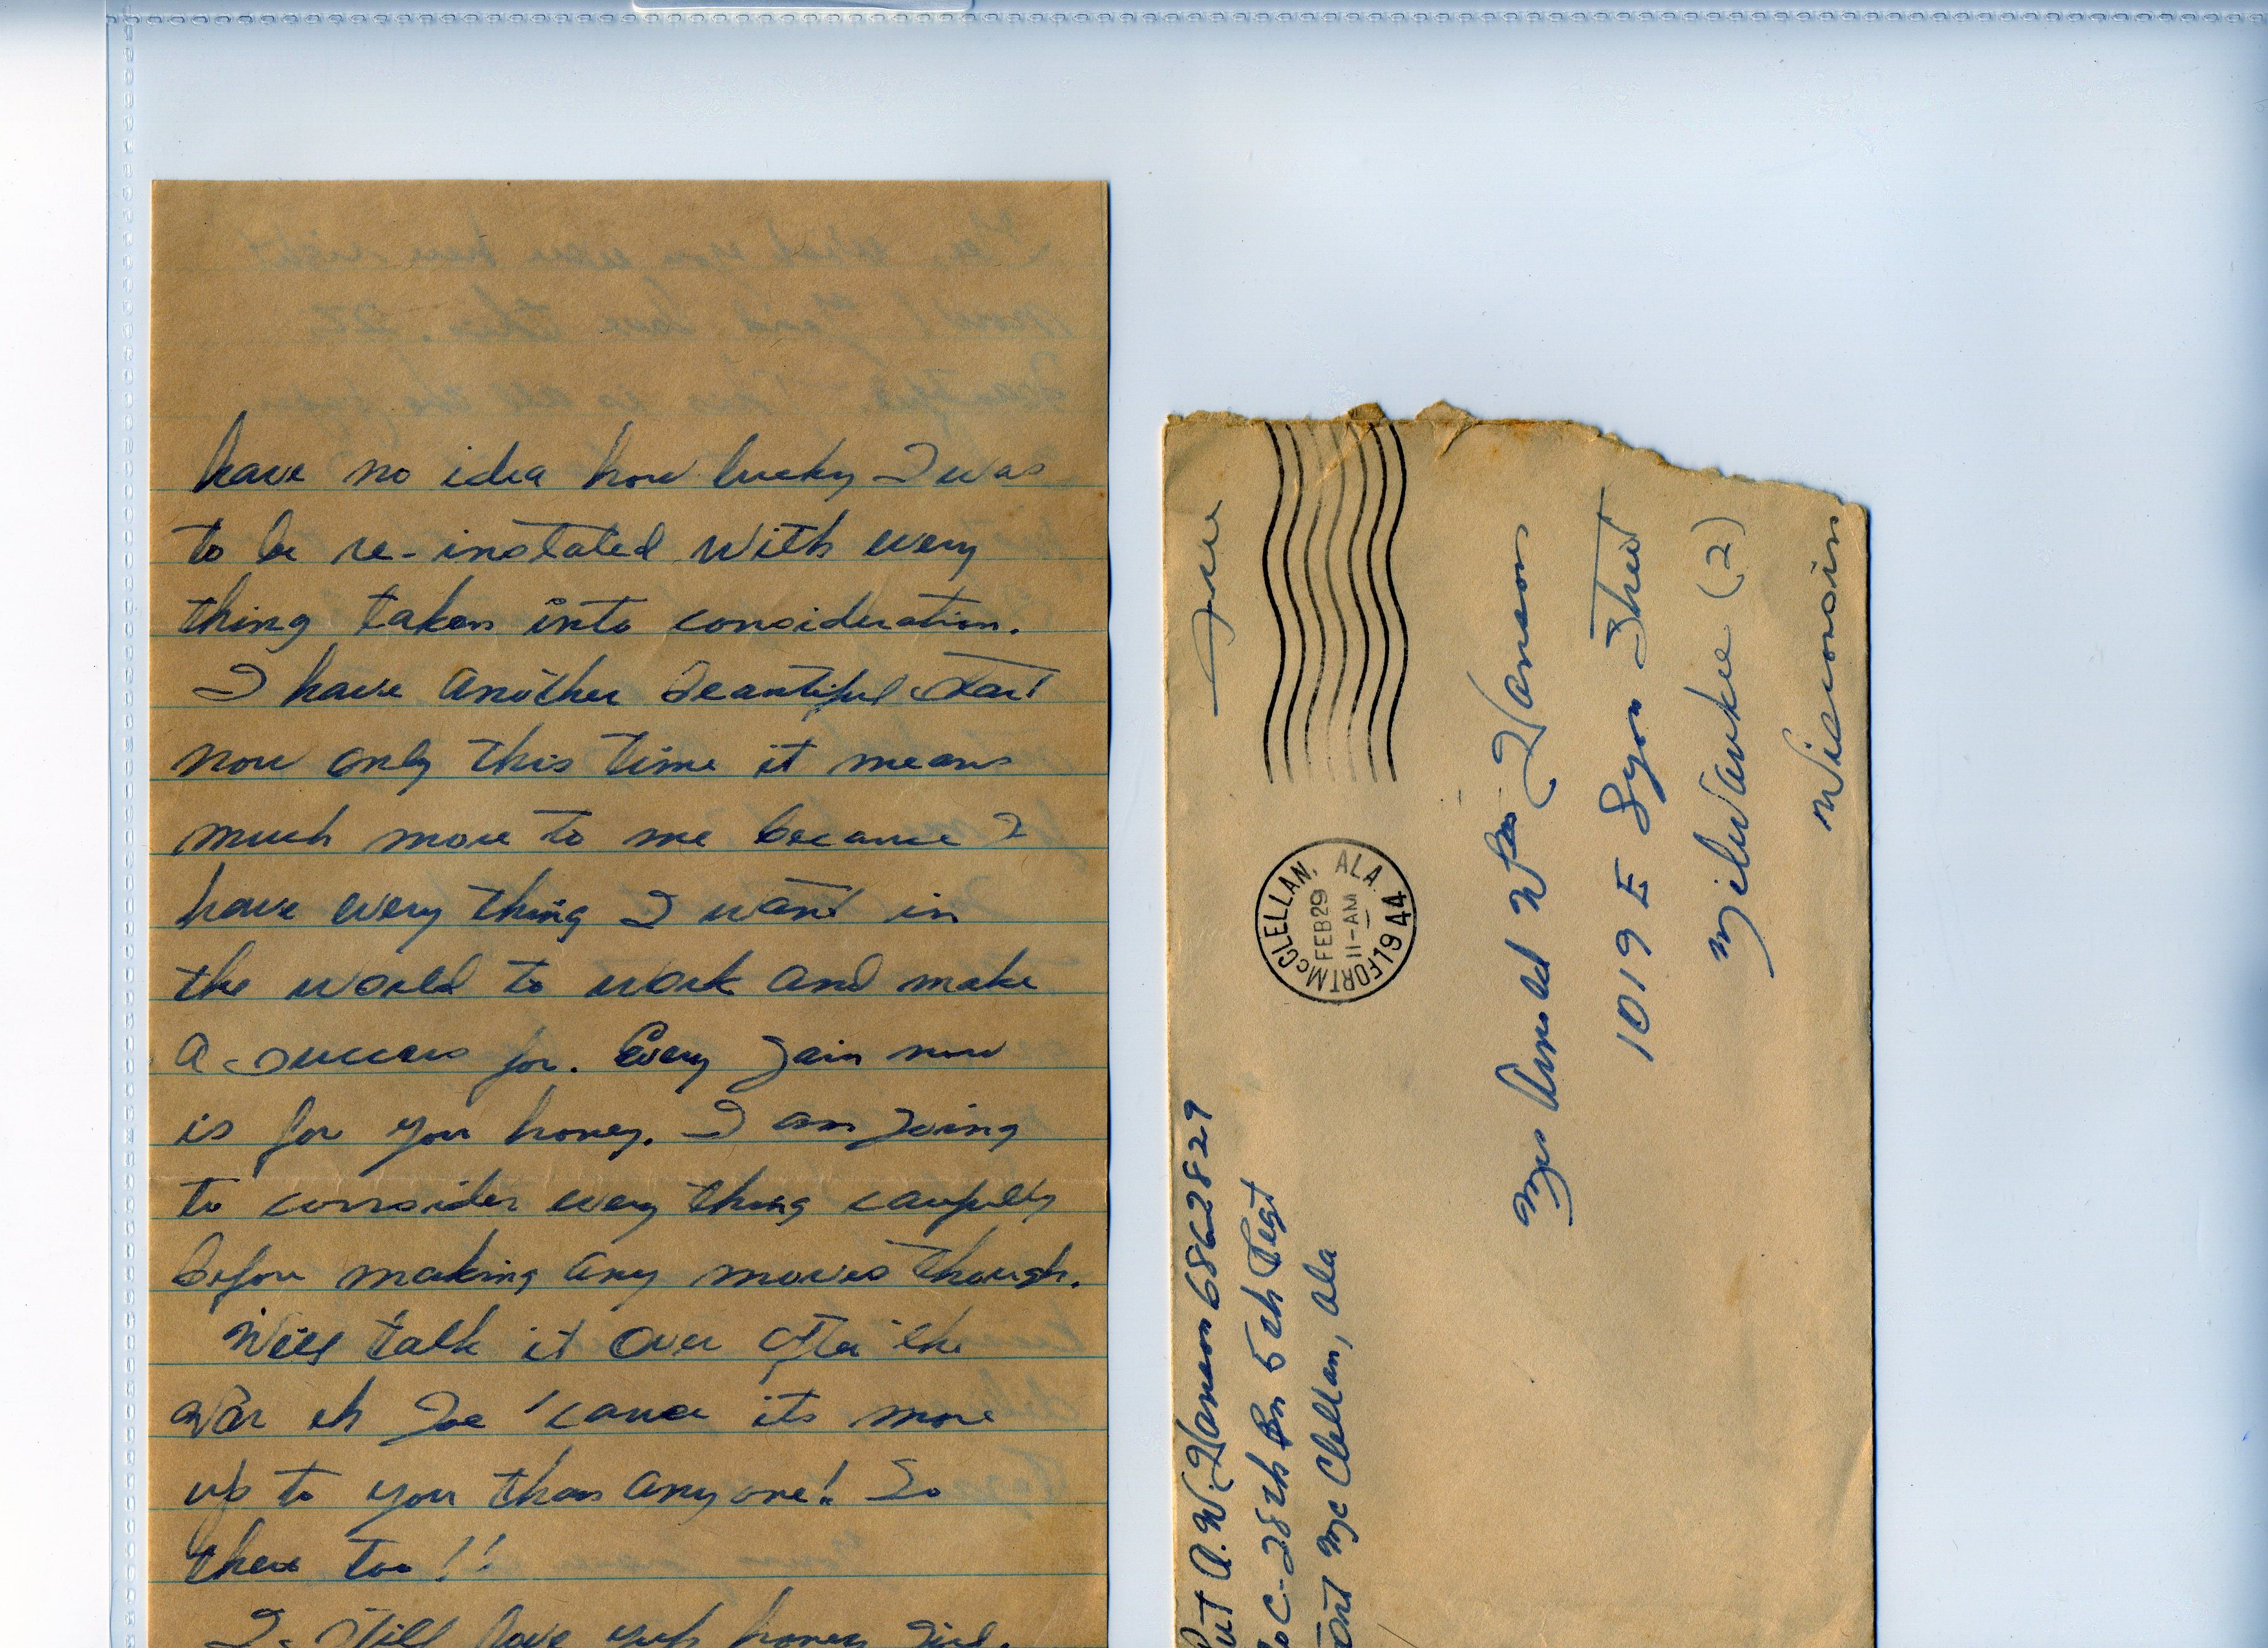 have no idea how lucky I was
to be re-instated with every
thing taken into consideration.
I have another beautiful start
now only this time it means
much more to me because I
have every thing I want in
the world to work and make
a success for. Every gain now
is for you honey. I am going
to consider every thing carefully
before making any moves though.
Will talk it over after the
war eh Joe 'cause its more
up to you than anyone! So
there too!!
I still love yuh honey girl.
Free
FORT McCLELLAN, ALA.
FEB 29
11-AM
1944
Mrs Arnold Wm Hanson
1019 E Lyon Street
Milwaukee (2)
Wisconsin
Pvt A.W. Hanson 6862829
Co C-28th Bn 5th Regt
Fort McClellan, Ala